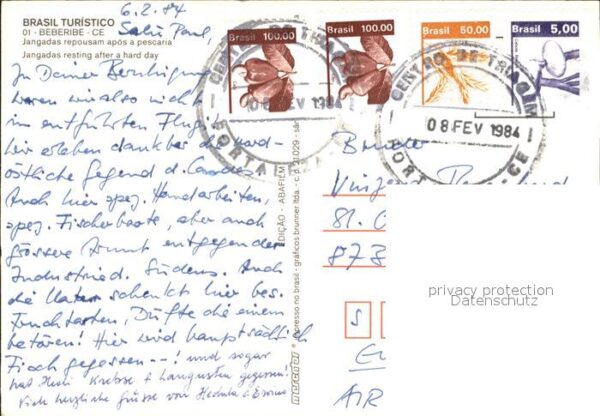 6.2.84
BRASIL TURÍSTICO
01 - BEBERIBE - CE
Jangadas repousam após a pescaria
Jangadas resting after a hard day
Salü Paul,
Zu Deiner Beruhigung
waren wir also nicht
im entführten Flugz.!
Wir erleben dankbar die nord-
östliche Gegend d. Landes.
Auch hier spez. Handarbeiten,
spez. Fischerboote, aber auch
grössere Armut entgegen der
Industried. Südens. Auch
die Natur schenkt hier bes.
Fruchtarten, Düfte die einem
betören! Hier wird hauptsächlich
Fisch gegessen --! und sogar
hat Krebse + Langusten gegessen!
Viele herzliche Grüsse von
Brasil 100,00
Brasil 100,00
Brasil 50,00
Brasil 5,00
CENTRO DE TRIAGEM
08 FEV 1984
FORTALEZA
CENTRO DE TRIAGEM
08 FEV 1984
FORTALEZA - CE
EDIÇÃO - ABAFILM
impresso no brasil - gráficos brunner ltda. - c.p. 21029 - são
mercator
Bruder
Vinzenz
81.
873
privacy protection
Datenschutz
S
AIR